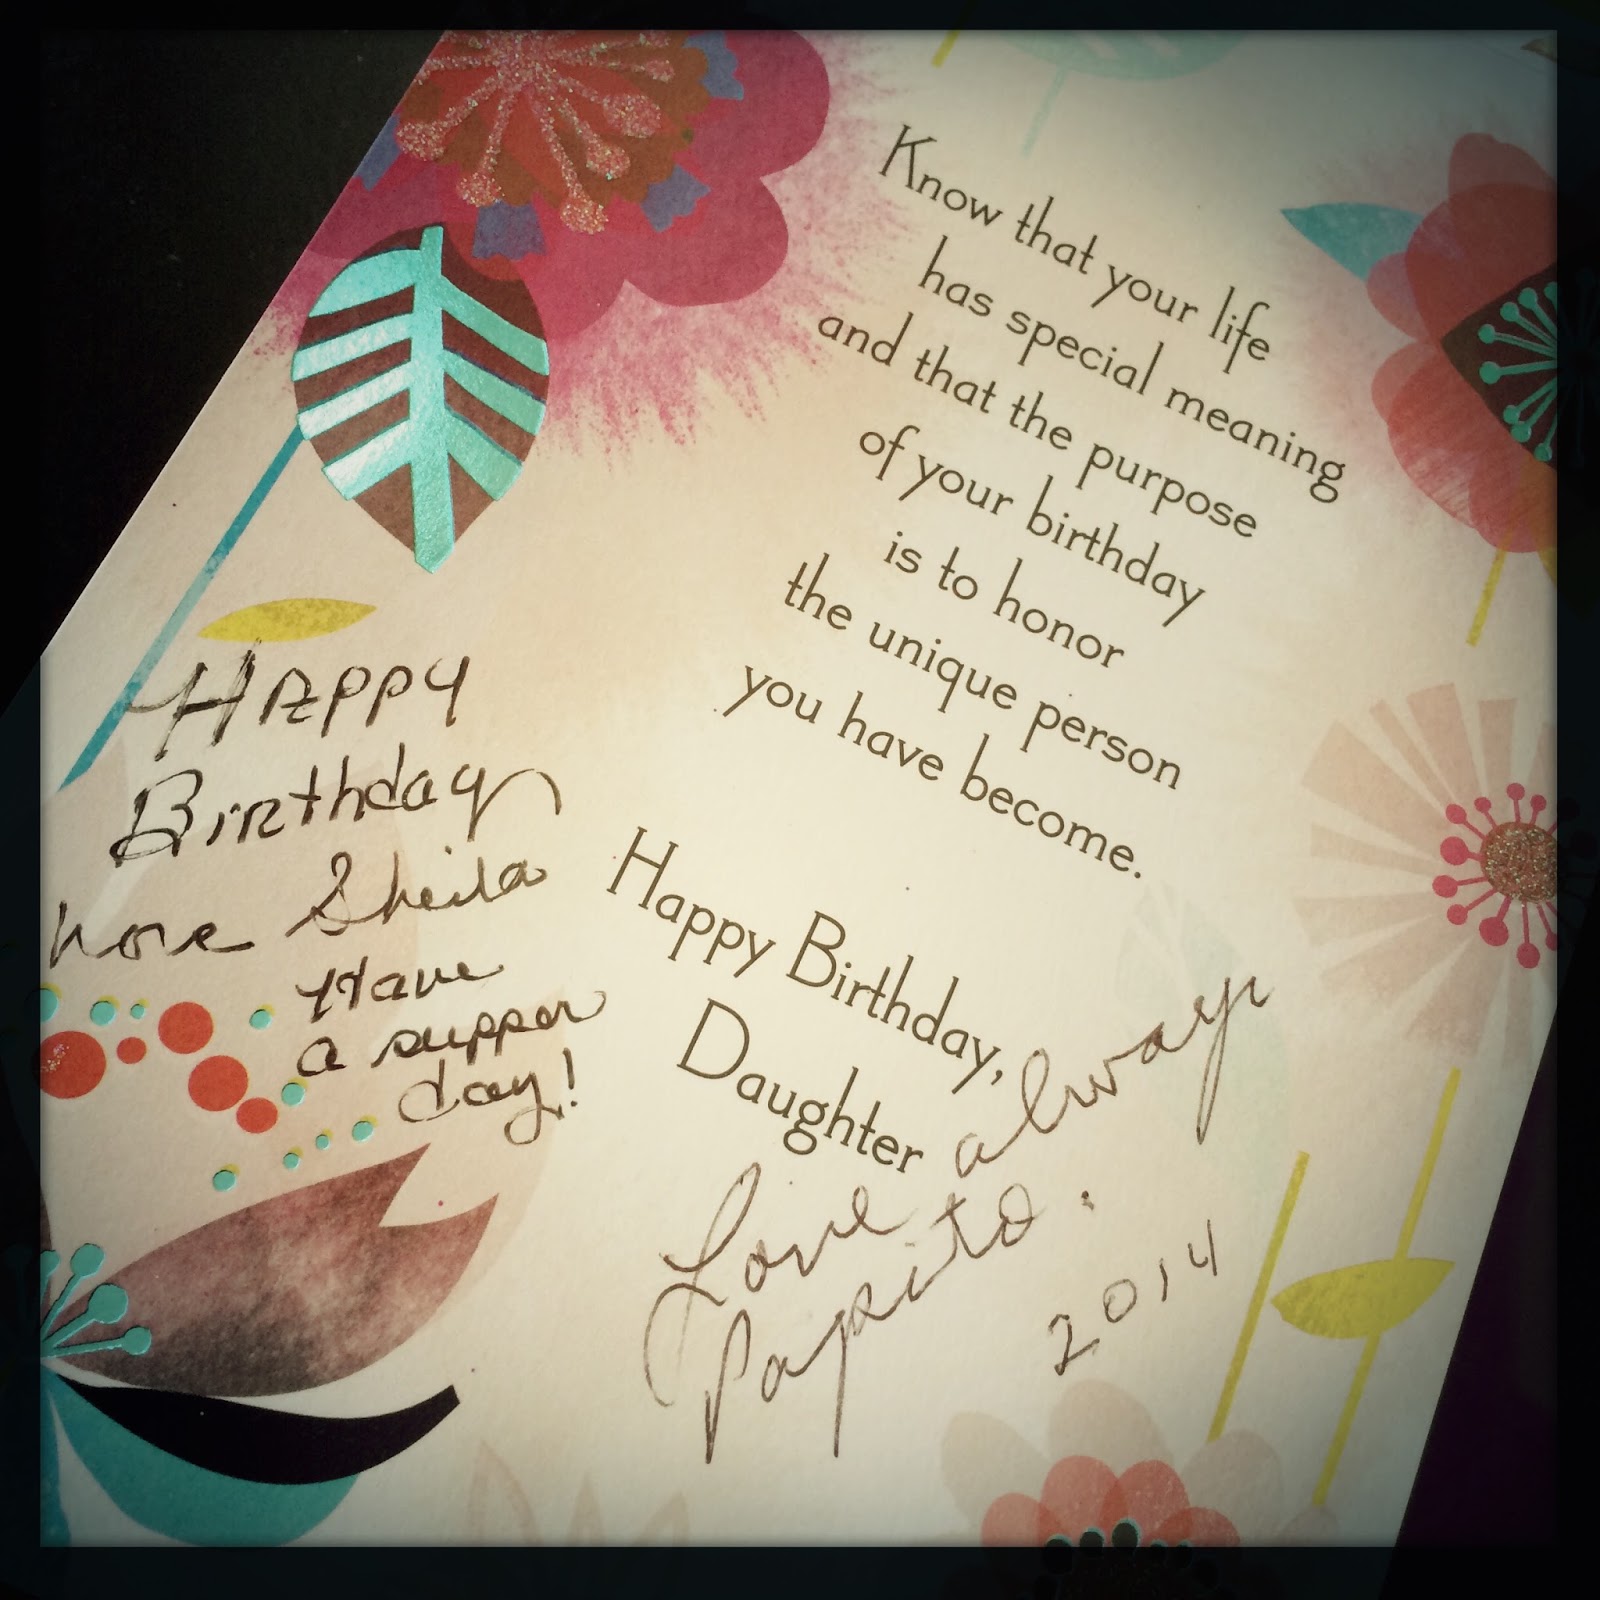 Know that your life
has special meaning
and that the purpose
of your birthday
is to honor
the unique person
you have become.
Happy Birthday,
Daughter
Happy
Birthday
Sheila
Have
a supper
day!
Love always
Papito.
2014